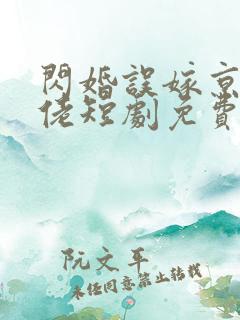 閃婚誤嫁京
佬短劇免費
阮文平
未經同意禁止轉載